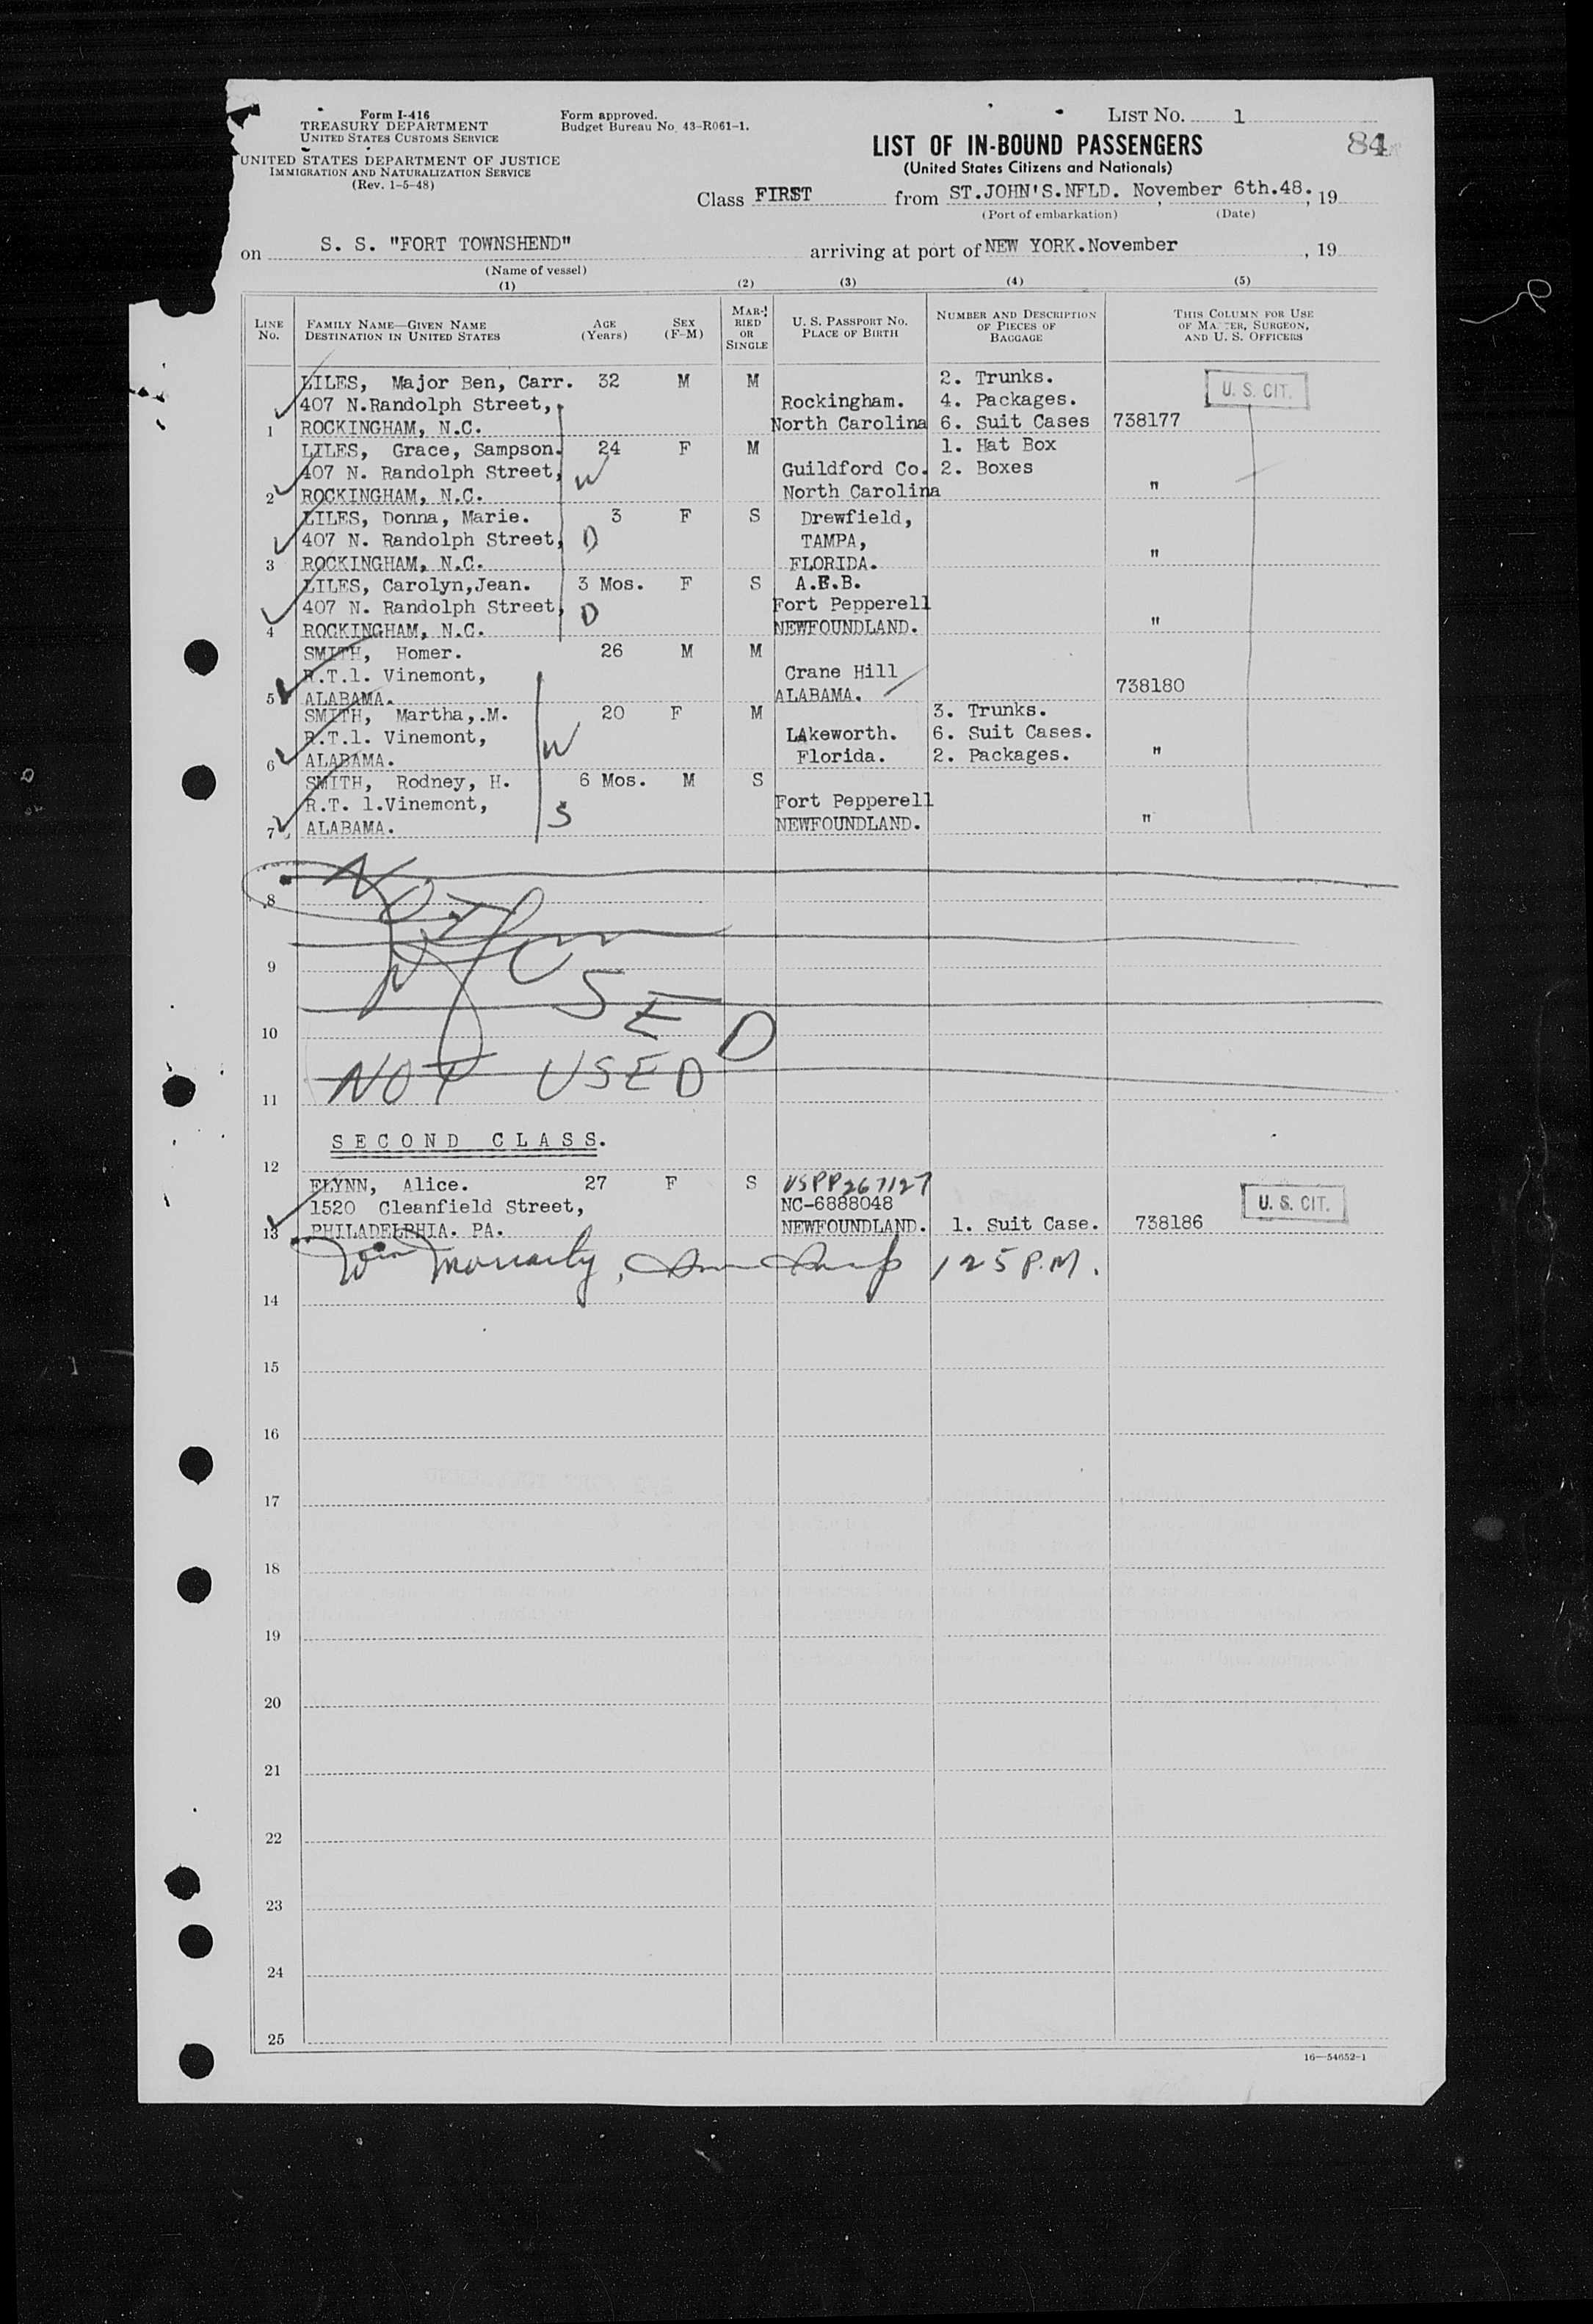 Form I-416
TREASURY DEPARTMENT
UNITED STATES CUSTOMS SERVICE
UNITED STATES DEPARTMENT OF JUSTICE
IMMIGRATION AND NATURALIZATION SERVICE
(Rev. 1-5-48)
Form approved.
Budget Bureau No. 43-R061-1.
LIST No. 1
LIST OF IN-BOUND PASSENGERS
84
(United States Citizens and Nationals)
Class FIRST from ST.JOHN'S.NFLD. November 6th.48. , 19
(Port of embarkation) (Date)
on S. S. "FORT TOWNSHEND" arriving at port of NEW YORK.November , 19
(Name of vessel)
(1) (2) (3) (4) (5)
LINE No. FAMILY NAME—GIVEN NAME DESTINATION IN UNITED STATES AGE (Years) SEX (F-M) MARRIED OR SINGLE U. S. PASSPORT No. PLACE OF BIRTH NUMBER AND DESCRIPTION OF PIECES OF BAGGAGE THIS COLUMN FOR USE OF MASTER, SURGEON, AND U. S. OFFICERS
LILES, Major Ben, Carr. 32 M M 2. Trunks. U. S. CIT.
407 N.Randolph Street, Rockingham. 4. Packages.
1 ROCKINGHAM, N.C. North Carolina 6. Suit Cases 738177
LILES, Grace, Sampson. 24 F M 1. Hat Box
407 N. Randolph Street, W Guildford Co. 2. Boxes
2 ROCKINGHAM, N.C. North Carolina "
LILES, Donna, Marie. 3 F S Drewfield,
407 N. Randolph Street, D TAMPA,
3 ROCKINGHAM, N.C. FLORIDA. "
LILES, Carolyn,Jean. 3 Mos. F S A.F.B.
407 N. Randolph Street, D Fort Pepperell
4 ROCKINGHAM, N.C. NEWFOUNDLAND. "
SMITH, Homer. 26 M M
R.T.1. Vinemont, Crane Hill
5 ALABAMA. ALABAMA. 738180
SMITH, Martha,.M. 20 F M 3. Trunks.
R.T.1. Vinemont, W LAkeworth. 6. Suit Cases.
6 ALABAMA. Florida. 2. Packages. "
SMITH, Rodney, H. 6 Mos. M S
R.T. 1.Vinemont, S Fort Pepperell
7 ALABAMA. NEWFOUNDLAND. "
8 NOT
9 USED
10
11 NOT USED
SECOND CLASS.
12
FLYNN, Alice. 27 F S USPP267127
1520 Cleanfield Street, NC-6888048 U. S. CIT.
13 PHILADELPHIA. PA. NEWFOUNDLAND. 1. Suit Case. 738186
Wm Moriarty, 125 P.M.
14
15
16
17
18
19
20
21
22
23
24
25
16—54652-1